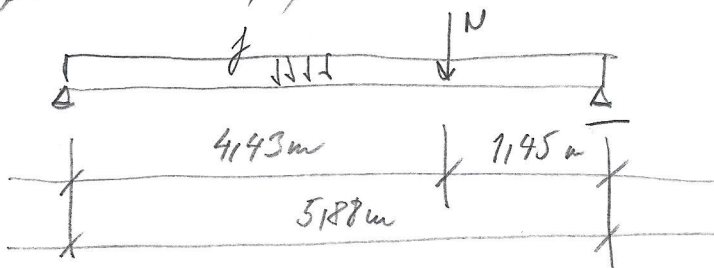 N
4,43m 1,45m
5,88m